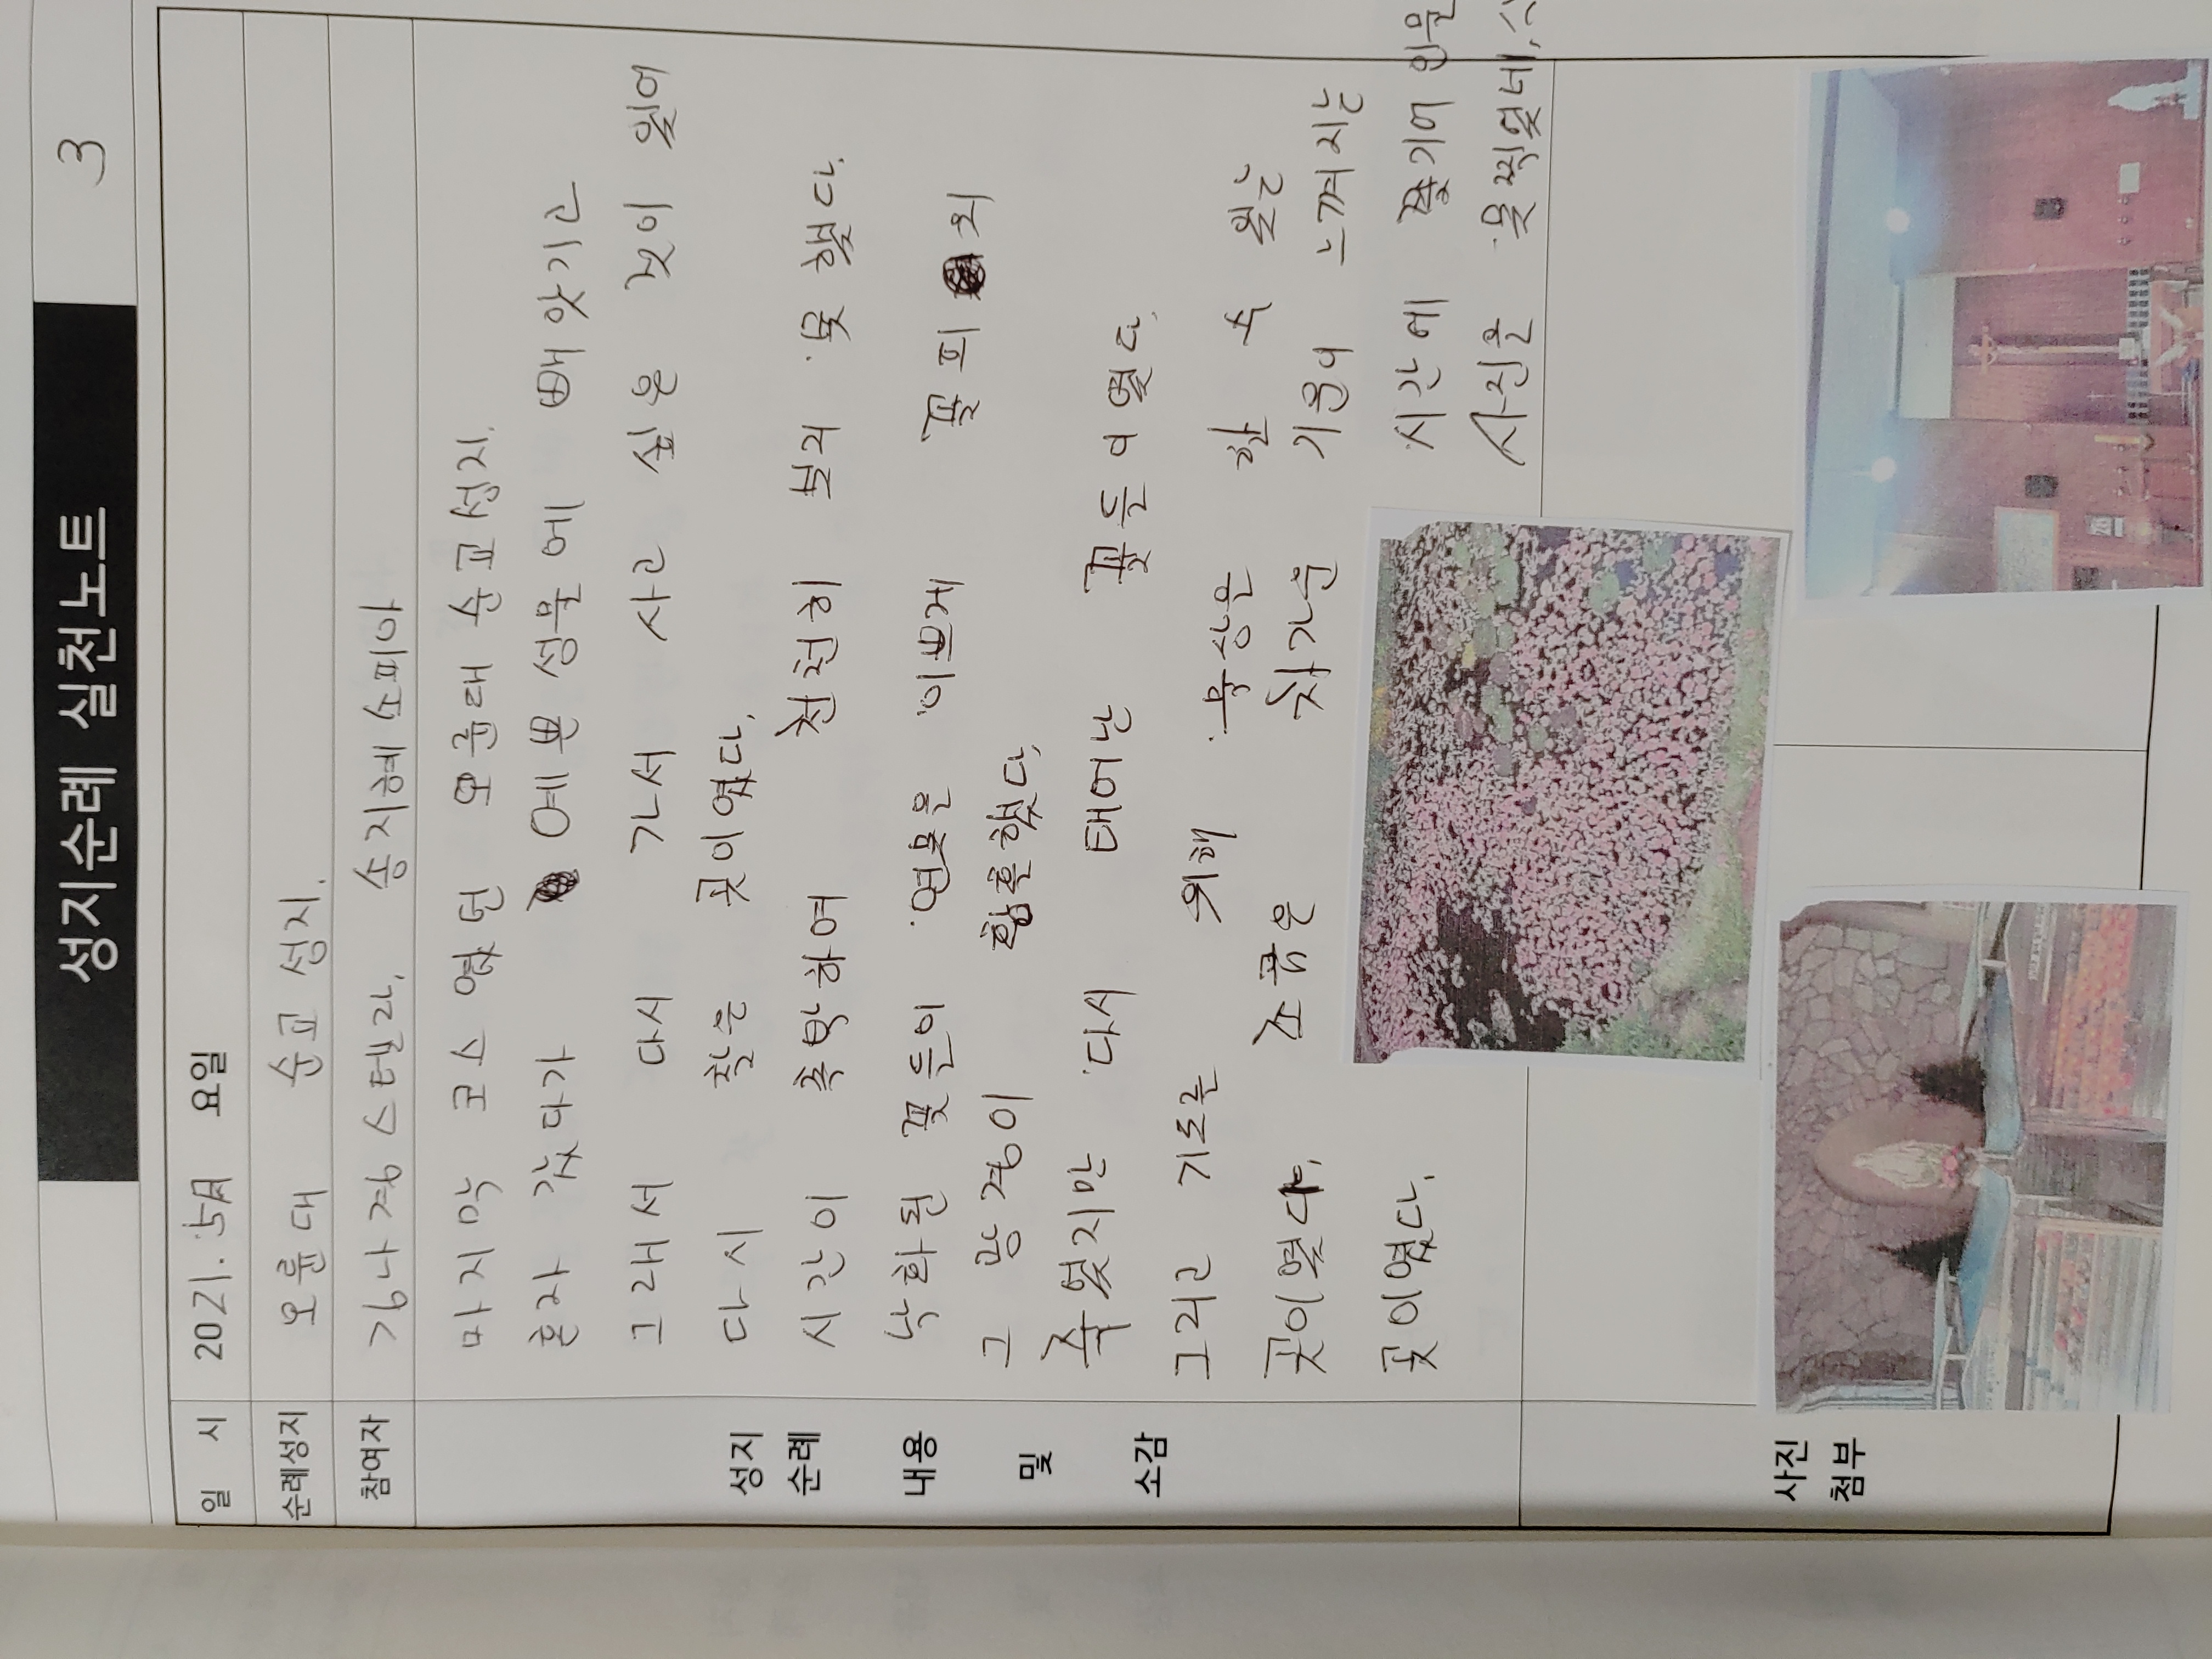 성지순례 실천노트
3
일 시 2021. 5月 요일
순례성지 오륜대 순교 성지.
참여자 김나경 스텔라, 송지혜 소피아
마지막 코스 였던 오륜대 순교성지.
혼자 갔다가 예쁜 성물에 빼앗기고
그래서 다시 가서 사고 싶은 것이 있어
다시 찾은 곳이였다.
시간이 촉박하여 천천히 보지 못 했다.
낙화된 꽃들이 연못을 이쁘게 꽃피워
그 광경이 황홀했다.
죽었지만 다시 태어난 꽃들이였다.
그리고 기도를 위해 묵상은 할 수 있는
곳이였다. 조금은 차가운 기운이 느껴지는
곳이였다.
시간에 쫓기어 인물
사진을 못찍었네.
성지
순례
내용
및
소감
사진
첨부